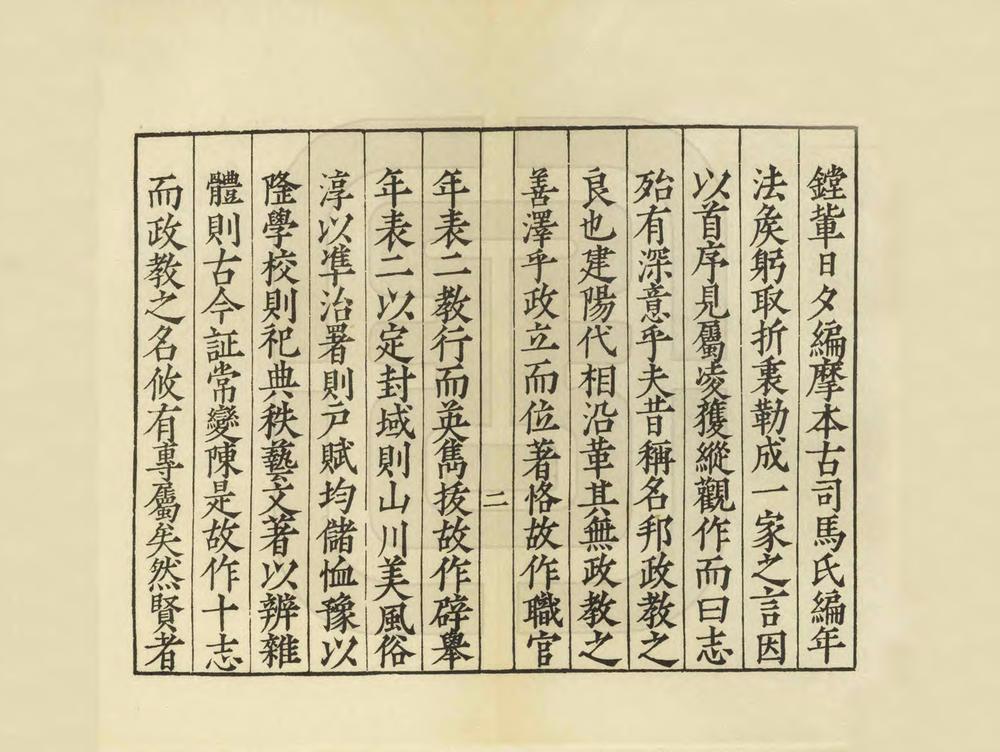 鏜軰日夕編摩本古司馬氏編年
法矦躬取折衷勒成一家之言因
以首序見屬凌獲縱觀作而曰志
殆有深意乎夫昔稱名邦政教之
良也建陽代相沿革其無政教之
善澤乎政立而位著恪故作職官
二
年表二教行而英雋拔故作辟舉
年表二以定封域則山川美風俗
淳以準治署則戸賦均儲恤豫以
隆學校則祀典秩藝文著以辨雜
體則古今証常變陳是故作十志
而政教之名攸有專屬矣然賢者